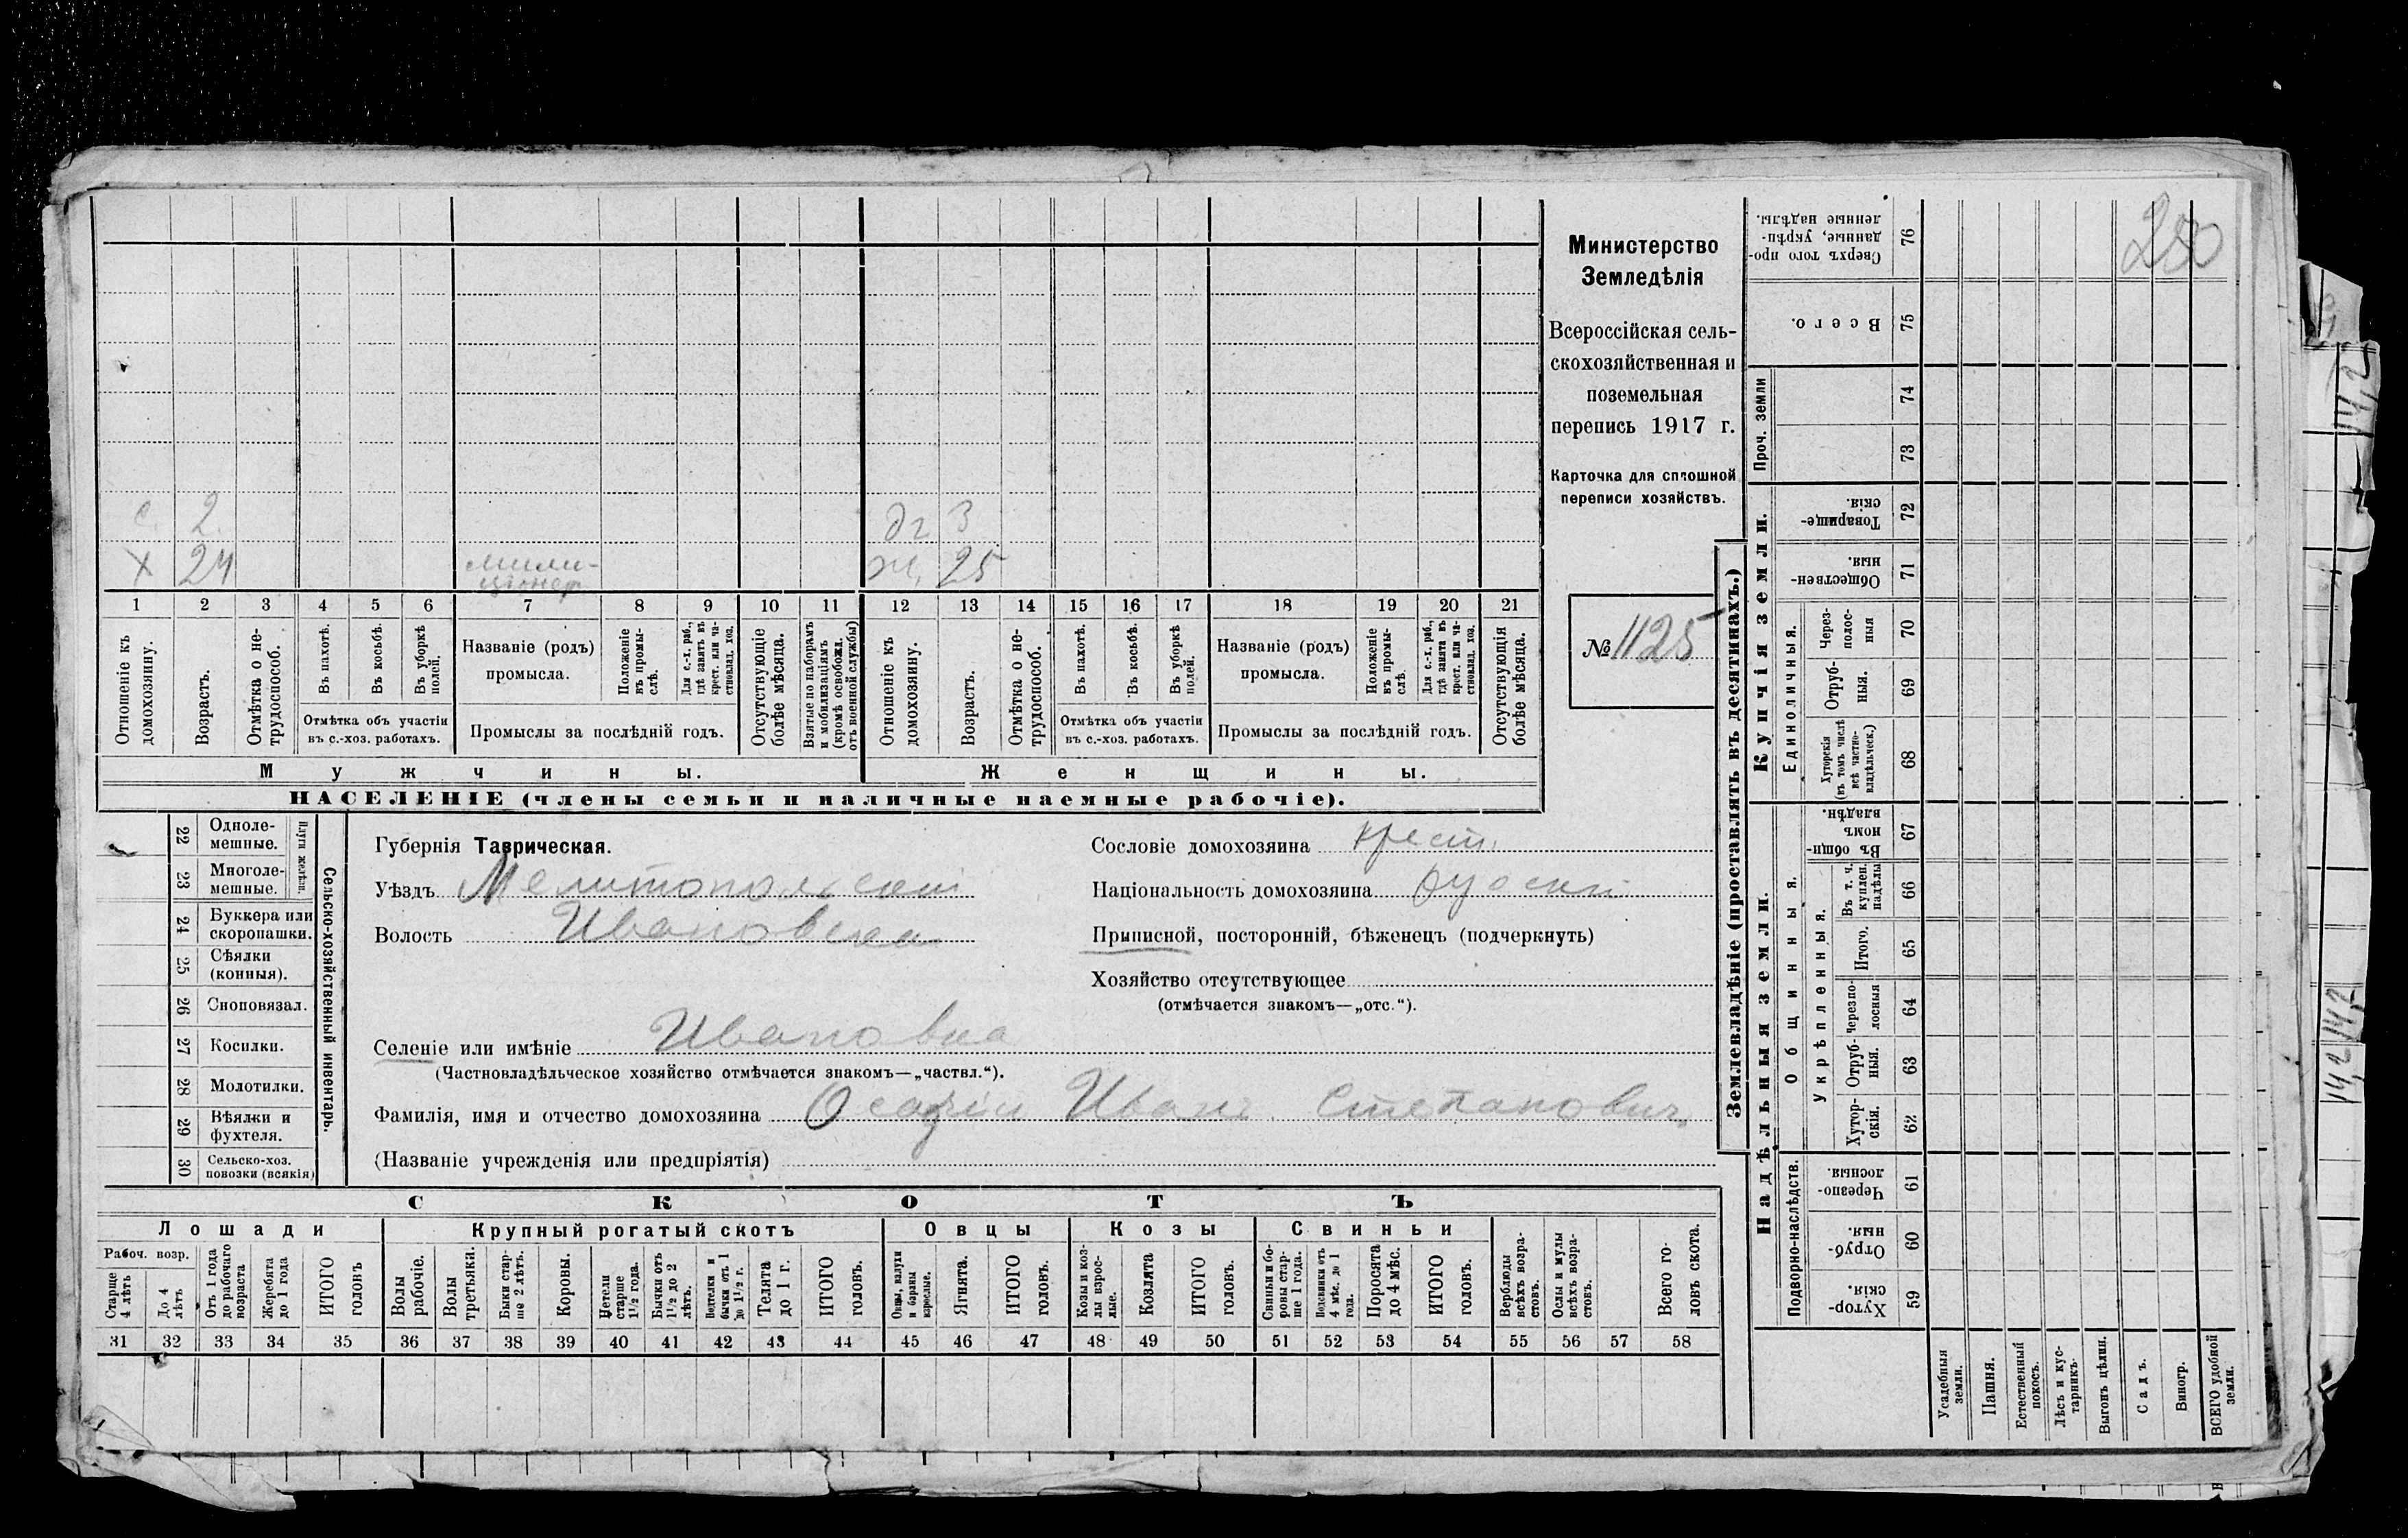 250
Министерство
Земледѣлія
Всероссійская сель-
скохозяйственная и
поземельная
перепись 1917 г.
Карточка для сплошной
переписи хозяйствъ.
№ 1125
с. 2.
дг. 3
х 24
мили-
ціонер
ж. 25
1 2 3 4 5 6 7 8 9 10 11 12 13 14 15 16 17 18 19 20 21
Отношеніе къ домохозяину.
Возрастъ.
Отмѣтка о не-трудоспособ.
Въ пахотѣ.
Въ косьбѣ.
Въ уборкѣ полей.
Отмѣтка объ участіи
въ с.-хоз. работахъ.
Названіе (родъ)
промысла.
Положеніе въ промы-слѣ.
Для с.-х. раб., гдѣ занятъ въ крест. или ча-стновлад. хоз.
Промыслы за послѣдній годъ.
Отсутствующіе болѣе мѣсяца.
Взятые по наборамъ и мобилизаціямъ (кромѣ освобожд. отъ военной службы)
Отношеніе къ домохозяину.
Возрастъ.
Отмѣтка о не-трудоспособ.
Въ пахотѣ.
Въ косьбѣ.
Въ уборкѣ полей.
Отмѣтка объ участіи
въ с.-хоз. работахъ.
Названіе (родъ)
промысла.
Положеніе въ промы-слѣ.
Для с.-х. раб., гдѣ занята въ крест. или ча-стновлад. хоз.
Промыслы за послѣдній годъ.
Отсутствующія болѣе мѣсяца.
Мужчины.
Женщины.
НАСЕЛЕНІЕ (члены семьи и наличные наемные рабочіе).
22 Одноле-мешные.
23 Многоле-мешные.
Плуги желѣзн.
24 Буккера или скоропашки.
25 Сѣялки (конныя).
26 Сноповязал.
27 Косилки.
28 Молотилки.
29 Вѣялки и фухтеля.
30 Сельско-хоз. повозки (всякія)
Сельско-хозяйственный инвентарь.
Губернія Таврическая.
Уѣздъ Мелитопольскій
Волость Ивановская
Селеніе или имѣніе Ивановка
(Частновладѣльческое хозяйство отмѣчается знакомъ—„частвл.“).
Фамилія, имя и отчество домохозяина Иванъ Степановичъ
(Названіе учрежденія или предпріятія)
Сословіе домохозяина крест.
Національность домохозяина русскій
Приписной, посторонній, бѣженецъ (подчеркнуть)
Хозяйство отсутствующее
(отмѣчается знакомъ—„отс.“).
СКОТЪ
Лошади
Крупный рогатый скотъ
Овцы
Козы
Свиньи
Рабоч. возр.
Старше 4 лѣтъ
До 4 лѣтъ
Отъ 1 года до рабочаго возраста
Жеребята до 1 года
ИТОГО головъ
Волы рабочіе.
Волы третьяки.
Быки стар-ше 2 лѣтъ.
Коровы.
Нетели старше 1 1/2 года.
Бычки отъ 1 1/2 до 2 лѣтъ.
Подтелки и бычки отъ 1 до 1 1/2 г.
Телята до 1 г.
ИТОГО головъ.
Овцы, валухи и бараны взрослые.
Ягнята.
ИТОГО головъ.
Козы и коз-лы взрос-лые.
Козлята
ИТОГО головъ.
Свиньи и бо-ровы стар-ше 1 года.
Подсвинки отъ 4 мѣс. до 1 года.
Поросята до 4 мѣс.
ИТОГО головъ.
Верблюды всѣхъ возра-стовъ.
Ослы и мулы всѣхъ возра-стовъ.
Всего го-ловъ скота.
31 32 33 34 35 36 37 38 39 40 41 42 43 44 45 46 47 48 49 50 51 52 53 54 55 56 57 58
Землевладѣніе (проставлять въ десятинахъ.)
Надѣльныя земли.
Купчія земли.
Проч. земли
Подворно-наслѣдств.
Общинныя.
Укрѣпленныя.
Единоличныя.
Сверхъ того про-данные, укрѣп-ленные надѣлы. 76
Всего. 75
74
73
Товарище-скія. 72
Обществен-ныя. 71
Через-полос-ныя 70
Отруб-ныя. 69
Хуторскія (въ томъ числѣ всѣ частно-владѣльческ.) 68
Въ общи-номъ владѣн. 67
Въ т. ч. куплен. надѣлы 66
Итого. 65
Черезпо-лосныя 64
Отруб-ныя. 63
Хутор-скія. 62
Черезпо-лосныя. 61
Отруб-ныя. 60
Хутор-скія. 59
Усадебныя земли.
Пашня.
Естественный покосъ.
Лѣсъ и кус-тарникъ.
Выгонъ цѣлин.
Садъ.
Виногр.
ВСЕГО удобной земли.
14,2
14,2
14,2